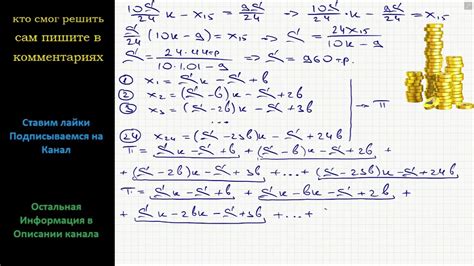 кто смог решить
сам пишите в
комментариях
Ставим лайки
Подписываемся на
Канал
Остальная
Информация в
Описании канала
10S/24 k - x₁₅ = 9S/24 ⇒ 10S/24 · k - 9S/24 = x₁₅
S/24 (10k - 9) = x₁₅ ⇒ S = 24x₁₅/10k - 9
S = 24·44т.р/10·1.01 - 9 ⇒ S = 960т.р.
① x₁ = Sk - S + b
② x₂ = (S - b)k - S + 2b
③ x₃ = (S - 2b)k - S + 3b
...
㉔ x₂₄ = (S - 23b)k - S + 24b
П
П = Sk - S + b + (S - b)k - S + 2b +
+ (S - 2b)k - S + 3b + ... + (S - 23b)k - S + 24b
П = Sk - S + b + Sk - bk - S + 2b +
+ Sk - 2bk - S + 3b + ... +